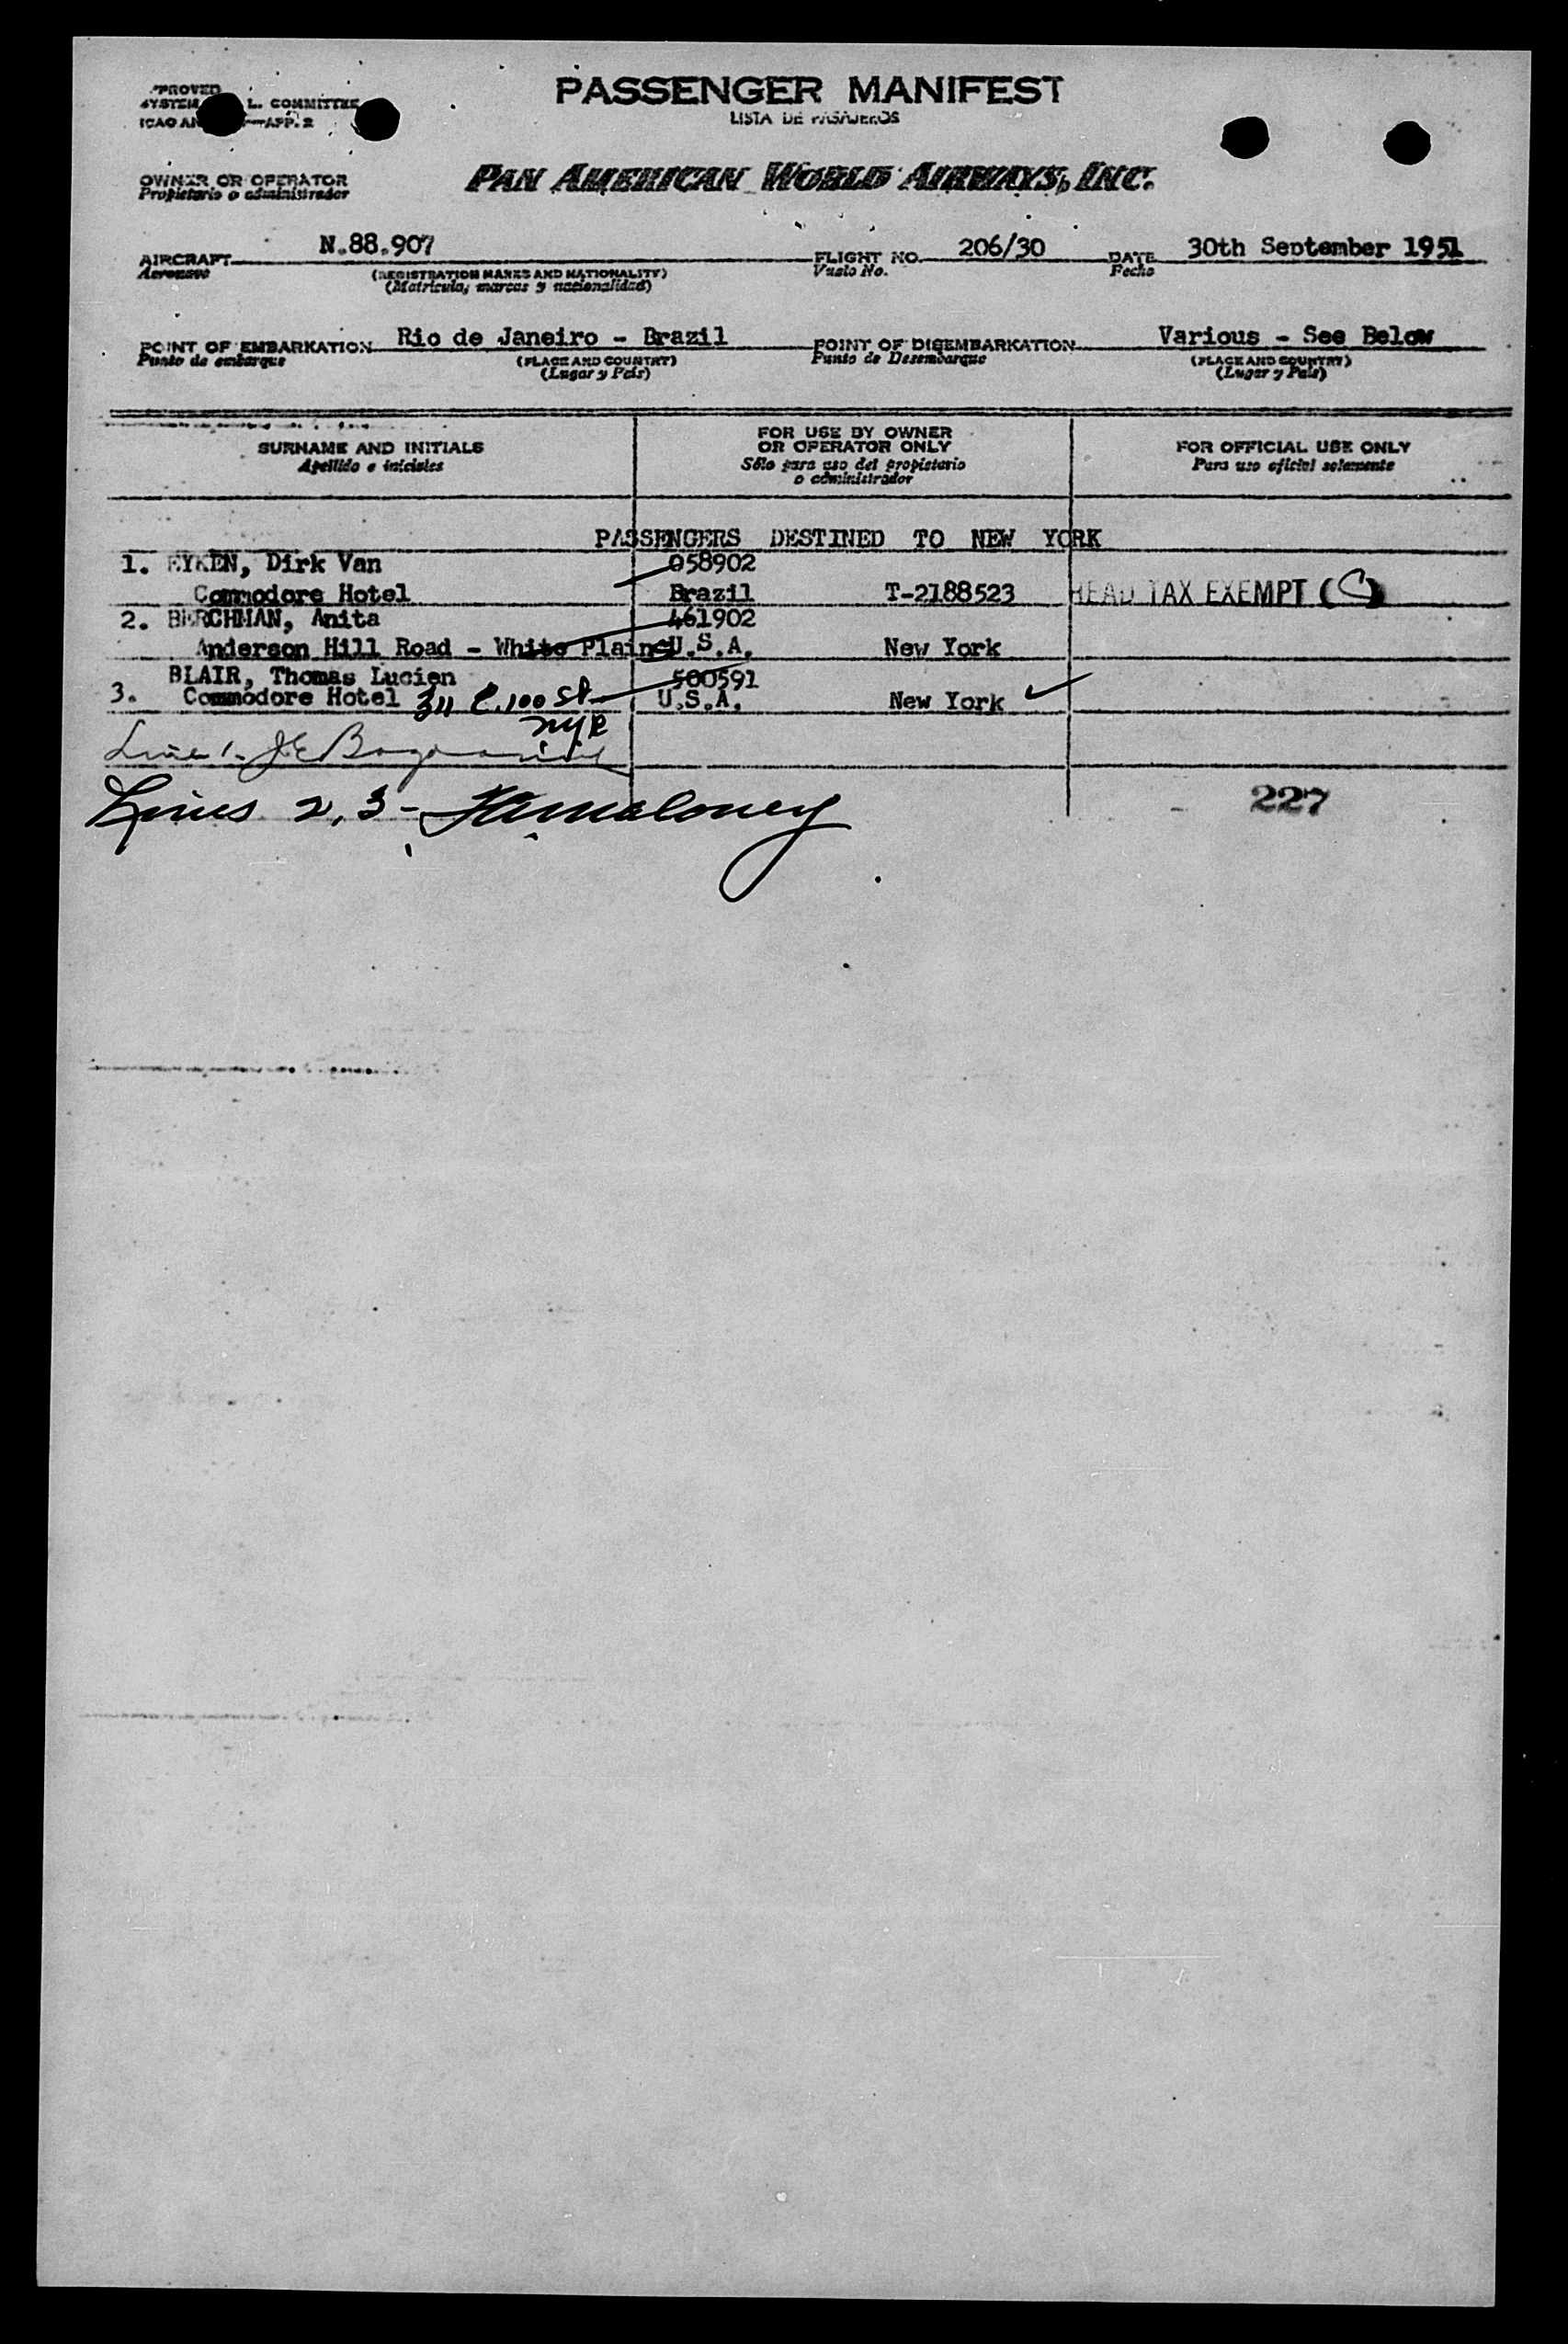 PASSENGER MANIFEST
LISTA DE PASAJEROS
APPROVED
SYSTEM L. COMMITTEE
ICAO AN —APP. 2
OWNER OR OPERATOR
Propietario o administrador
PAN AMERICAN WORLD AIRWAYS, INC.
AIRCRAFT N.88.907 FLIGHT NO. 206/30 DATE 30th September 1951
Aeronave (REGISTRATION MARKS AND NATIONALITY) Vuelo No. Fecha
(Matricula, marcas y nacionalidad)
POINT OF EMBARKATION Rio de Janeiro - Brazil POINT OF DISEMBARKATION Various - See Below
Punto de embarque (PLACE AND COUNTRY) Punto de Desembarque (PLACE AND COUNTRY)
(Lugar y País) (Lugar y País)
SURNAME AND INITIALS
Apellido e iniciales
FOR USE BY OWNER
OR OPERATOR ONLY
Sólo para uso del propietario
o administrador
FOR OFFICIAL USE ONLY
Para uso oficial solamente
PASSENGERS DESTINED TO NEW YORK
1. EYKEN, Dirk Van 058902
Commodore Hotel Brazil T-2188523 HEAD TAX EXEMPT (C)
2. BERCHMAN, Anita 461902
Anderson Hill Road - White Plains U.S.A. New York
BLAIR, Thomas Lucien 500591
3. Commodore Hotel 311 E. 100 St U.S.A. New York ✓
NYC
Line 1.- J.E.
Lines 2, 3 - Maloney
227